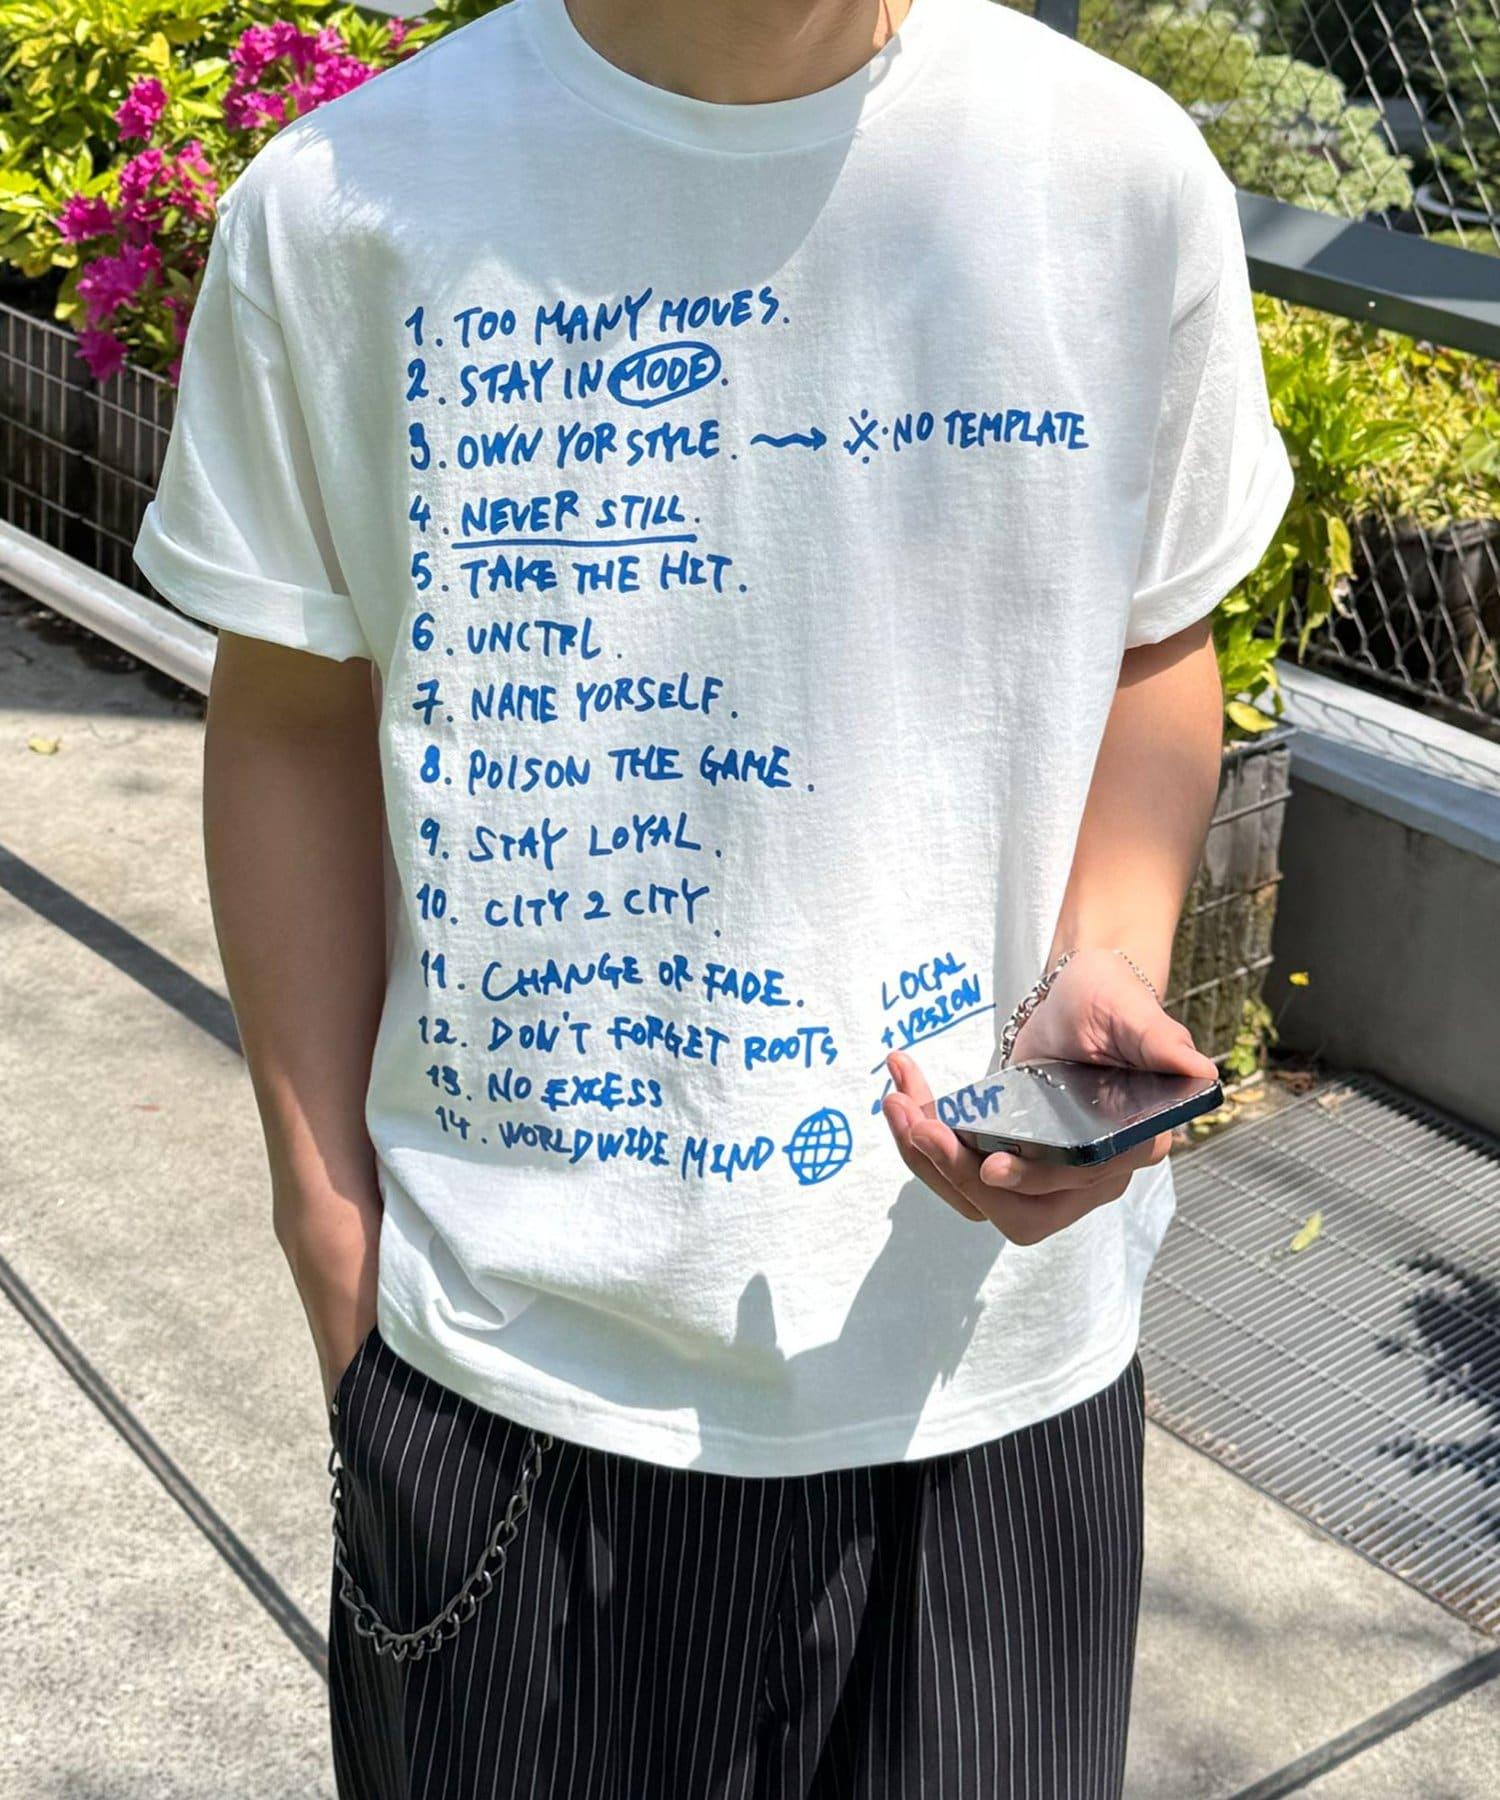 1. TOO MANY MOVES.
2. STAY IN MODE.
3. OWN YOR STYLE. → ※ NO TEMPLATE
4. NEVER STILL.
5. TAKE THE HIT.
6. UNCTRL.
7. NAME YORSELF.
8. POISON THE GAME.
9. STAY LOYAL.
10. CITY 2 CITY.
11. CHANGE OR FADE.
12. DON'T FORGET ROOTS
13. NO EXCESS
14. WORLDWIDE MIND
LOCAL
+ VISION